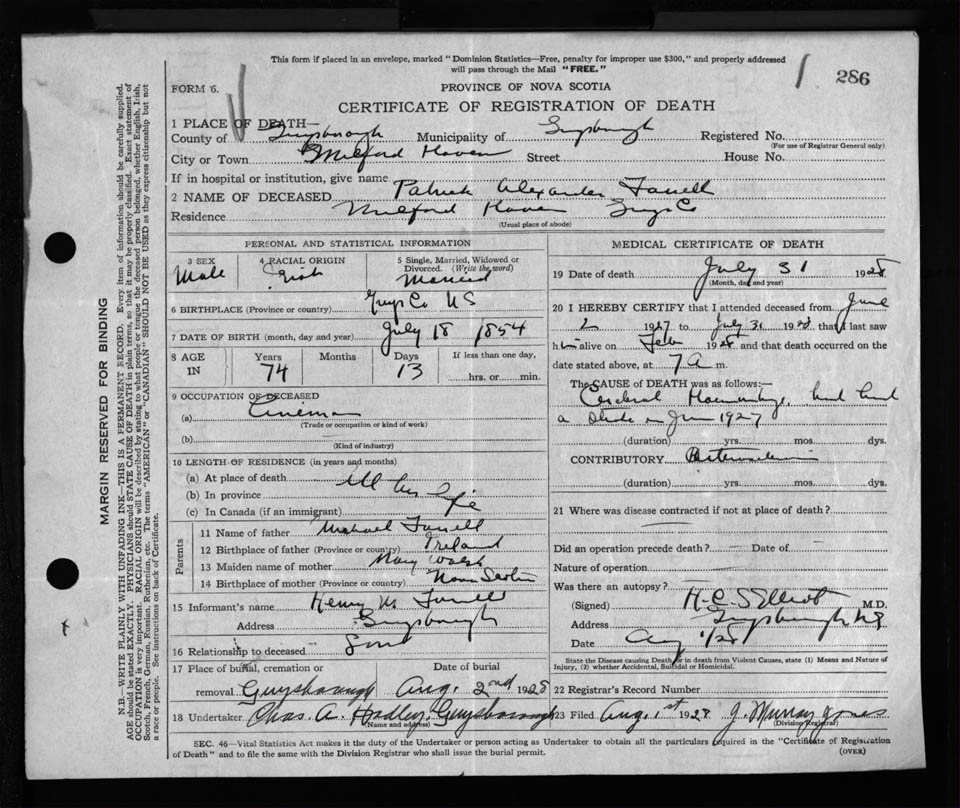 This form if placed in an envelope, marked "Dominion Statistics—Free, penalty for improper use $300," and properly addressed
will pass through the Mail "FREE."
286
FORM 6.
PROVINCE OF NOVA SCOTIA
CERTIFICATE OF REGISTRATION OF DEATH
1 PLACE OF DEATH—
County of Guysborough Municipality of Guysborough Registered No.
(For use of Registrar General only)
City or Town Milford Haven Street House No.
If in hospital or institution, give name
2 NAME OF DECEASED Patrick Alexander Farrell
Residence Milford Haven Guys Co
(Usual place of abode)
MARGIN RESERVED FOR BINDING
N.B.—WRITE PLAINLY WITH UNFADING INK—THIS IS A PERMANENT RECORD. Every item of information should be carefully supplied.
AGE should be stated EXACTLY. PHYSICIANS should STATE CAUSE OF DEATH in plain terms, so that it may be properly classified. Exact statement of
OCCUPATION is very important. RACIAL ORIGIN will be described by stating to what people or tongue the deceased person belonged, whether English, Irish,
Scotch, French, German, Russian, Ruthenian, etc. The terms "AMERICAN" or "CANADIAN" SHOULD NOT BE USED as they express citizenship but not
a race or people. See instructions on back of Certificate.
PERSONAL AND STATISTICAL INFORMATION
3 SEX
Male
4 RACIAL ORIGIN
Irish
5 Single, Married, Widowed or
Divorced. (Write the word)
Married
6 BIRTHPLACE (Province or country) Guys Co NS
7 DATE OF BIRTH (month, day and year) July 18 1854
8 AGE
IN
Years
74
Months
Days
13
If less than one day,
hrs. or min.
9 OCCUPATION OF DECEASED
(a) Lineman
(Trade or occupation or kind of work)
(b)
(Kind of industry)
10 LENGTH OF RESIDENCE (in years and months)
(a) At place of death All his life
(b) In province
(c) In Canada (if an immigrant)
Parents
11 Name of father Michael Farrell
12 Birthplace of father (Province or country) Ireland
13 Maiden name of mother Mary Walsh
14 Birthplace of mother (Province or country) Nova Scotia
15 Informant's name Henry M Farrell
Address Guysborough
16 Relationship to deceased Son
17 Place of burial, cremation or
removal Guysborough
Date of burial
Aug. 2nd 1928
18 Undertaker Chas. A. Hadley, Guysborough
(Name and address)
MEDICAL CERTIFICATE OF DEATH
19 Date of death July 31 1928
(Month, day and year)
20 I HEREBY CERTIFY that I attended deceased from June
2 1927 to July 31 1928 that I last saw
him alive on Feb 1928 and that death occurred on the
date stated above, at 7 a m.
The CAUSE of DEATH was as follows:—
Cerebral Haemorrhage, had had
a stroke in June 1927
(duration) yrs. mos. dys.
CONTRIBUTORY
(duration) yrs. mos. dys.
21 Where was disease contracted if not at place of death?
Did an operation precede death? Date of
Nature of operation
Was there an autopsy?
(Signed) H.C.S Elliot M.D.
Address Guysborough NS
Date Aug 1/28
State the Disease causing Death, or in death from Violent Causes, state (1) Means and Nature of
Injury, (2) whether Accidental, Suicidal or Homicidal.
22 Registrar's Record Number
23 Filed Aug. 1st 1928 J. Murray Jones
(Division Registrar)
SEC. 46—Vital Statistics Act makes it the duty of the Undertaker or person acting as Undertaker to obtain all the particulars required in the "Certificate of Registration
of Death" and to file the same with the Division Registrar who shall issue the burial permit.
(OVER)